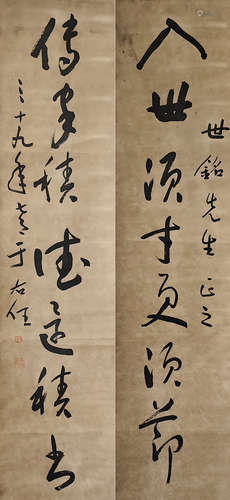 世銘先生正之
入世須才更須節
傳家積德還積書
三十九年春于右任